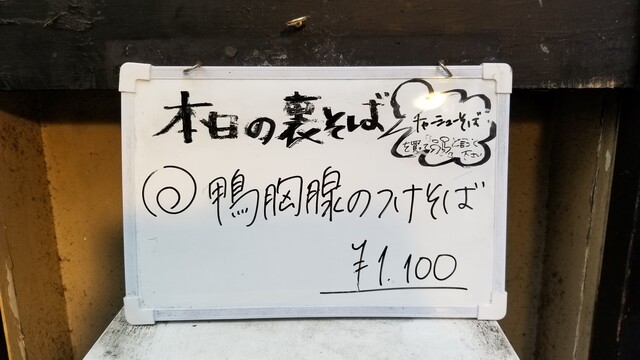 本日の裏そば
チャーシューそば
を買って
下さい
鴨胸腺のつけそば
¥1.100